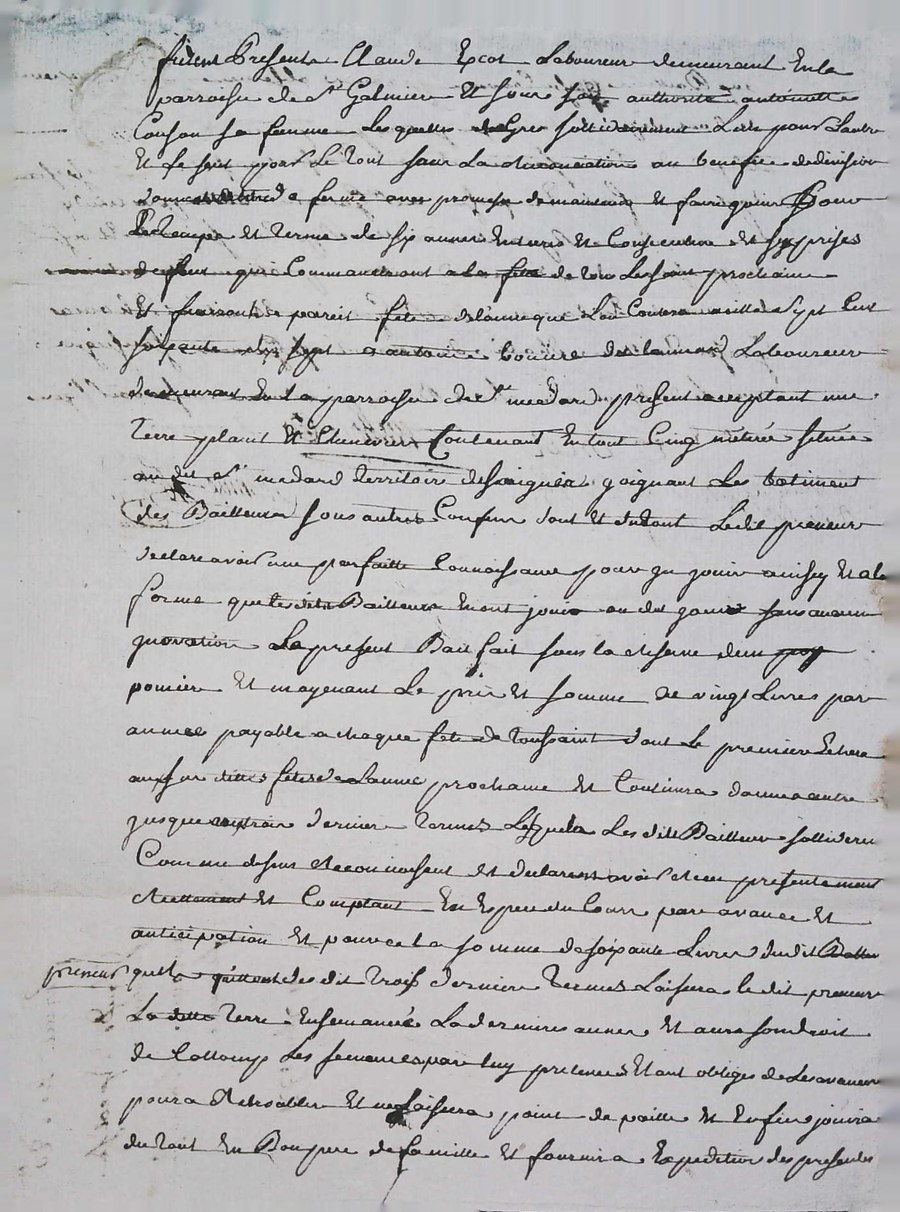 furent Presents Claude Excot Laboureur demeurant En la
parroisse de St Galmier Et sous son authorité antoinette
Couson sa femme Lesquelles de Gré sollidairement Lun pour Lautre
Et le seul pour Le tout sans La renonciation au benefice de division
a ferme avec promesse de maintenir Et faire jouir Pour
Le temps et terme de six années Entieres Et Consecutives Et six prises
de fruit qui Commanceront a la fete de tous Les saint prochaine
Et finiront a pareil fete de lannee que Lon Contera mille sept Cent
soixante dix sept a antoine Laboureur
demeurant En La parroisse de St medard present acceptant une
Terre plaint Et Chenevier Contenant En tout Cinq méterée située
au dit St medard territoire de joignant Les batiment
des Bailleurs sous autres Confins dont Et du tout Ledit preneur
declare avoir une parfaitte Connoissance pour En jouir ainsy Et a la
forme que lesdits Bailleurs En ont jouis ou du jouir sans aucune
jnovation Le present Bail fait sous la reserve dun
pomier Et moyenant Le prix Et somme de vingt Livres par
année payable a chaque fete de toussaint dont Le premier Echera
aux sus dittes fetes de Lannee prochaine Et Continura dannee autre
jusque aux trois dernier termes Lesquels Les dits Bailleurs sollideres
Comme dessus reconnoissent Et declarent avoir receu presentement
reellement Et Comptant En Espece du Cours par avance Et
anticipation Et pour ce La somme de soixante Livres du dit
preneur quitte quittent des dit trois dernier termes Laissera le dit preneur
La ditte terre Ensemancée La derniere année Et aura son droit
de Les semances par Luy pretenees Etant obliges de Les avancer
pour a Et ne Laissera point de paille Et Enfin jouira
du tout En Bon pere de famille Et fournira Expedition des presentes